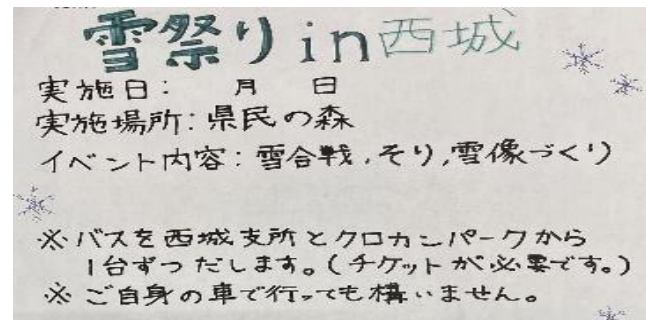 雪祭りin西城
実施日: 月 日
実施場所:県民の森
イベント内容:雪合戦,そり,雪像づくり
※バスを西城支所とクロカンパークから
1台ずつだします。(チケットが必要です。)
※ご自身の車で行っても構いません。